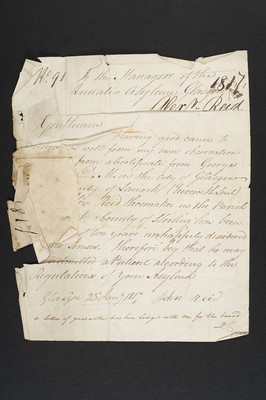 No. 91
To the Managers of the
Lunatic Asylum, Glasgow
1817
Alexr. Reid
Gentlemen
Having good cause to
as well from my own observation
from a certificate from George
M.D. in the City of Glasgow
County of Lanark (herewith sent
Reid shoemaker in the Parish
County of Stirling has been
of two years unhappily disordered
in his Senses. I therefore beg that he may
be admitted a Patient according to the
Regulations of your Asylum
Glasgow 25 Augt 1817 John Reid
a letter of guarantee has been lodged with me for the board